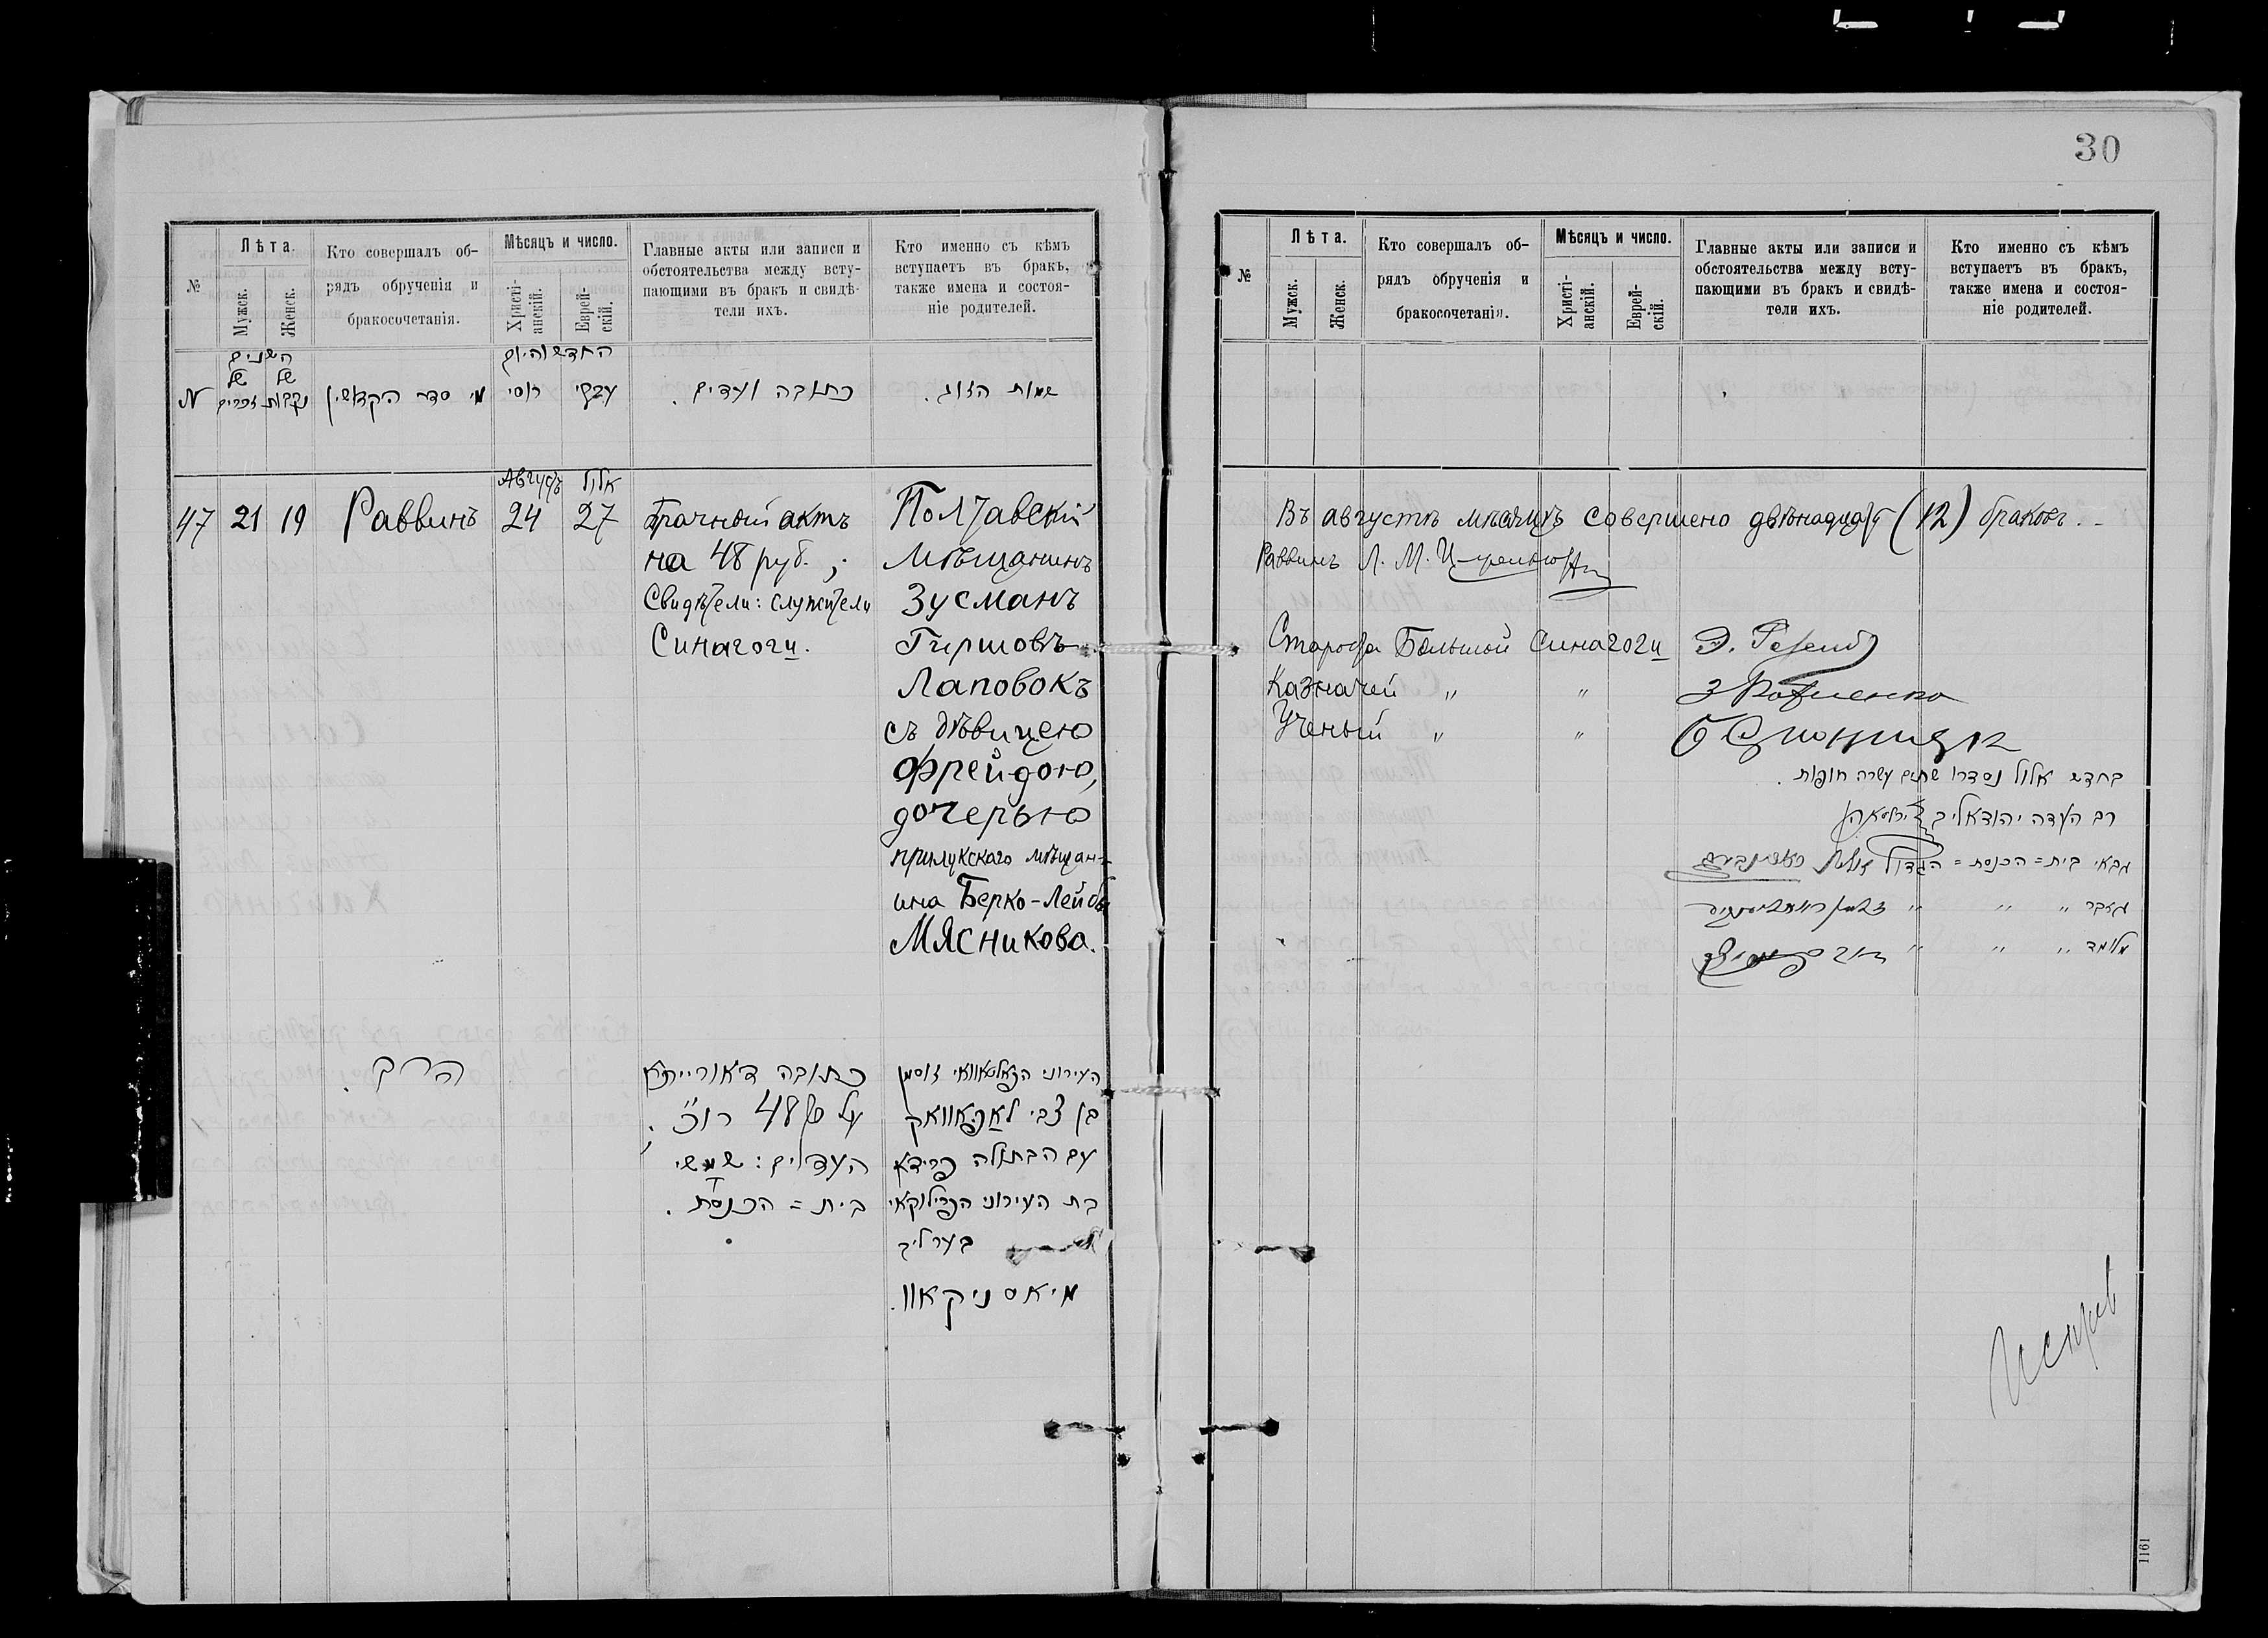 30
№
Лѣта.
Мужск.
Женск.
Кто совершалъ об-
рядъ обрученія и
бракосочетанія.
Мѣсяцъ и число.
Христі-
анскій.
Еврей-
скій.
Главные акты или записи и
обстоятельства между всту-
пающими въ бракъ и свидѣ-
тели ихъ.
Кто именно съ кѣмъ
вступаетъ въ бракъ,
также имена и состоя-
ніе родителей.
השנים
של זכרים
של נקבות
מי סדר הקדושין
החדש והיום
רוסי
עברי
כתובה ועדים.
שמות הזוג.
47
21
19
Раввинъ
Августъ
24
אלול
27
Брачный актъ
на 48 руб.;
Свидѣтели: служители
Синагоги.
Полтавскій
мѣщанинъ
Зусманъ
Гиршовъ
Лаповокъ
съ дѣвицею
Фрейдою,
дочерью
прилукскаго мѣщан-
ина Берко-Лейбы
Мясникова.
הרב.
כתובה דאורייתא
על 48 רו״כ.
העדים: שמשי
בית = הכנסת.
העירוני הפאלטאוואי זוסמן
בן צבי לאפאוואק
עם הבתולה פריידא
בת העירוני הפרילוקאי
בערליב
מיאסניקאוו.
№
Лѣта.
Мужск.
Женск.
Кто совершалъ об-
рядъ обрученія и
бракосочетанія.
Мѣсяцъ и число.
Христі-
анскій.
Еврей-
скій.
Главные акты или записи и
обстоятельства между всту-
пающими въ бракъ и свидѣ-
тели ихъ.
Кто именно съ кѣмъ
вступаетъ въ бракъ,
также имена и состоя-
ніе родителей.
Въ августѣ мѣсяцѣ совершено двѣнадцать (12) браковъ.
Раввинъ Л. М.
Староста Большой Синагоги
Казначей " "
Ученый " "
בחדש אלול נסדרו שתים עשרה חופות.
רב העדה
גבאי בית = הכנסת = הגדול
גזבר " " "
מלומד " " "
1161